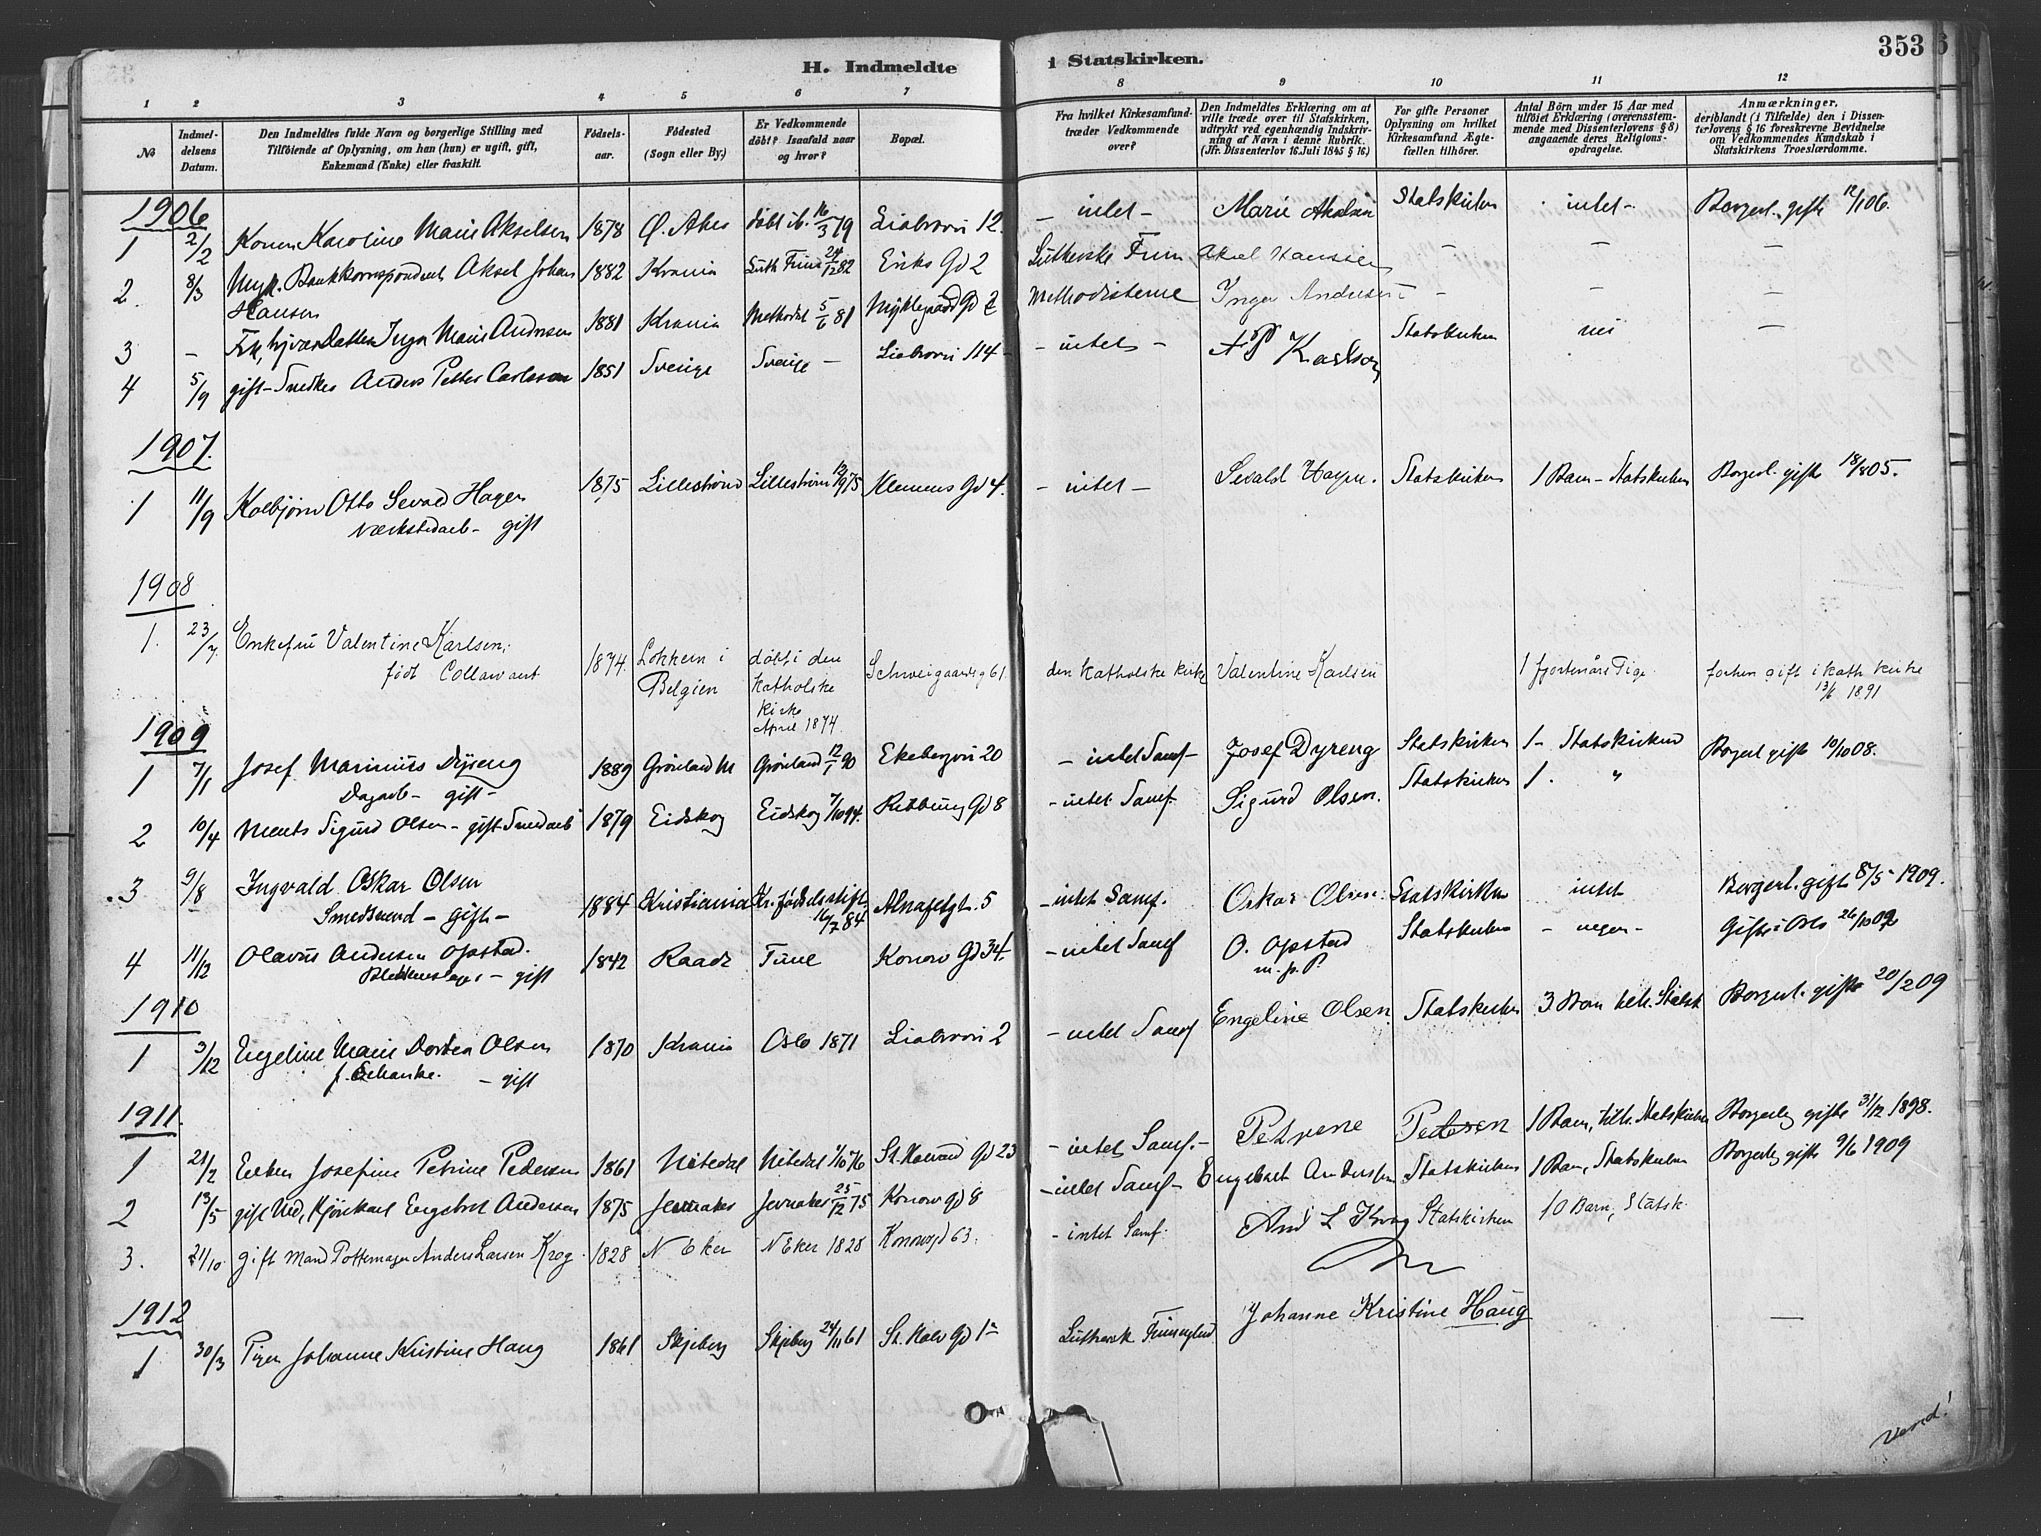 353
H. Indmeldte i Statskirken.
1 2 3 4 5 6 7 8 9 10 11 12
№
Indmel-
delsens
Datum.
Den Indmeldtes fulde Navn og borgerlige Stilling med
Tilföiende af Oplysning, om han (hun) er ugift, gift,
Enkemand (Enke) eller fraskilt.
Födsels-
aar.
Födested
(Sogn eller By.)
Er Vedkommende
döbt? Isaafald naar
og hvor?
Bopæl.
Fra hvilket Kirkesamfund
træder Vedkommende
over?
Den Indmeldtes Erklæring om at
ville træde over til Statskirken,
udtrykt ved egenhændig Indskriv-
ning af Navn i denne Rubrik.
(Jfr. Dissenterlov 16. Juli 1845 § 16.)
For gifte Personer
Oplysning om hvilket
Kirkesamfund Ægte-
fællen tilhörer.
Antal Börn under 15 Aar med
tilföiet Erklæring (overensstem-
mende med Dissenterlovens § 8)
angaaende deres Religions-
opdragelse.
Anmærkninger,
deriblandt (i Tilfælde) den i Dissen-
terlovens § 16 foreskrevne Bevidnelse
om Vedkommendes Kundskab i
Statskirkens Troeslærdomme.
1906
1 2/2 Konen Karoline Marie Akselsen 1878 Ø. Aker döbt ib. 16/3 79 Liabrovei 12 - intet - Marie Akselsen Statskirken - intet - Borgerl. gift 12/1 06.
2. 8/3 Ungk. Bankkorrespondent Aksel Johan 1882 Krania Luth Frim 24/12 82 Eriks Gd 2 Lutherske Frim Aksel Hansen - - -
Hansen
3 - Frk, Datter Inga Marie Andersen 1881 Krania Methodist 5/6 81 Gd 2 Methodisterne Inga Andersen - - -
4 5/9 gift - Snedker Anders Petter Carlsson 1851 Sverige Sverige - Liabrovei 114 - - intet - A P Karlson Statskirken nei -
1907.
1 11/9 Kolbjörn Otto Sevald Hagen 1875 Lilleström Lilleström 12/9 75 Klemens Gd 4. - intet - Sevald Hagen. Statskirken 1 Barn - Statskirken Borgerl. gift 18/8 05.
værkstedarb - gift
1908
1. 23/7. Enkefru Valentine Karlsen, 1874. Lokkern i döbt i den Schweigaardsg 61. den Katholske Kirke Valentine Karlsen 1 fjortenårs Pige forhen gift i kath kirke
född Collawaert Belgien Katholske 13/6 1891
Kirke
April 1874.
1909
1 7/1 Josef Marinius Dyreng 1889 Grönland M Grönland 12/1 90 Ekebergvei 20 - intet Samf - Josef Dyreng Statskirken 1 - Statskirken Borgerl gift 10/10 08.
Dagarb - gift -
2 10/4 Ments Sigurd Olsen - gift Smedarb 1879 Eidskog Eidskog 7/10 94. Gd 8 - intet Samf. Sigurd Olsen. Statskirken 1. "
3 9/8 Ingvald Oskar Olsen 1884 Kristiania Kr. födselsstift. Alnafetgt. 5 - intet Samf. Oskar Olsen Statskirken intet Borgerl. gift 8/5 1909.
Smedsvend - gift - 16/7 84
4 11/12 Olavus Andersen Opstad. 1842 Raade Tune Konow Gd 34. - intet Samf O. Opstad Statskirken - ingen - Gift i Oslo 26/10 09
Blikkenslager - gift m. p. P.
1910
1 3/12 Engeline Marie Dortea Olsen 1870 Krania Oslo 1871 Liabrovei 2 - intet Samf Engeline Olsen Statskirken 3 Barn tilh. Statsk Borgerl. gift 20/2 09
f. Schanke. - gift
1911.
1 21/2 Enken Josefine Petrine Pedersen 1861 Nitedal Nitedal 1/10 76 St. Halvard Gd 23 - intet Samf. - Petrene Pedersen 1 Barn, tilh. Statskirken Borgerlig gift 31/12 1898.
2 13/5 gift Ved, Kjörekarl Engebret Andersen 1875 Jevnaker Jevnaker 25/12 75 Konow gd 8 - intet Samf - Engebret Andersen Statskirken 1 Barn, Statskirken Borgerlig gift 9/6 1909
3. 21/10. gift Mand Pottemager Anders Larsen Krog 1828 N Eker N Eker 1828 Konowgd 63. - intet Samf. And L Krog Statskirken 10 Barn, Statsk.
1912
1 30/3 Pigen Johanne Kristine Haug 1861 Skjeberg Skjeberg 24/11 61 St. Halv Gd 1 a Luthersk Frimenighed Johanne Kristine Haug -
Vend!